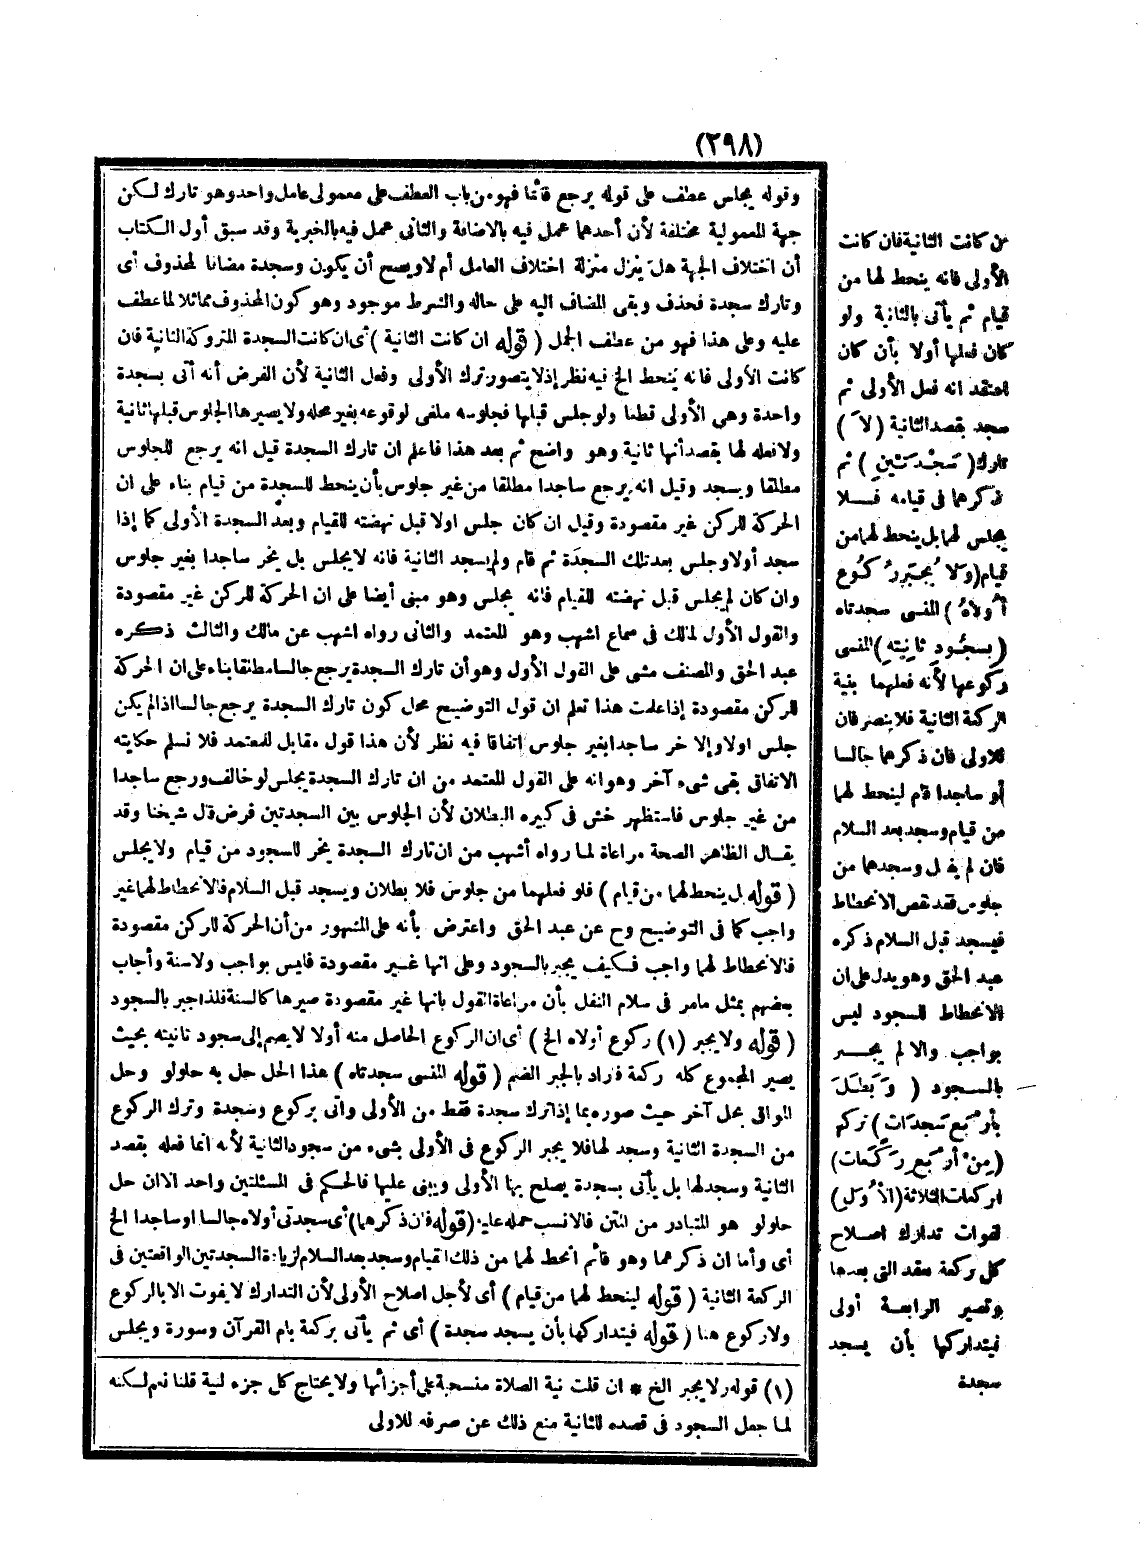 (٢٩٨)
وقوله يجلس عطف على قوله يرجع قائما فهو من باب العطف على معمولى عامل واحد وهو تارك لكن
جهة المعمولية مختلفة لأن أحدهما عمل فيه بالاضافة والثانى عمل فيه بالخبرية وقد سبق أول الكتاب
أن اختلاف الجهة هل ينزل منزلة اختلاف العامل أم لا ويصح أن يكون وسجدة مضافا لمحذوف أى
وتارك سجدة فحذف وبقى المضاف اليه على حاله والشرط موجود وهو كون المحذوف مماثلا لما عطف
عليه وعلى هذا فهو من عطف الجمل (قوله ان كانت الثانية) أى ان كانت السجدة المتروكة الثانية فان
كانت الأولى فانه ينحط الخ فيه نظر إذ لا يتصور ترك الأولى وفعل الثانية لأن الفرض أنه أتى بسجدة
واحدة وهى الأولى قطعا ولو جلس قبلها فجلوسه ملغى لوقوعه بغير محله ولا يصيرها الجلوس قبلها ثانية
ولا فعله لها بقصد أنها ثانية وهو واضح ثم بعد هذا فاعلم ان تارك السجدة قيل انه يرجع للجلوس
مطلقا ويسجد وقيل انه يرجع ساجدا مطلقا من غير جلوس بأن ينحط للسجدة من قيام بناء على ان
الحركة للركن غير مقصودة وقيل ان كان جلس أولا قبل نهضته للقيام وبعد السجدة الأولى كما إذا
سجد أولا وجلس بعد تلك السجدة ثم قام ولم يسجد الثانية فانه لا يجلس بل يخر ساجدا بغير جلوس
وان كان لم يجلس قبل نهضته للقيام فانه يجلس وهو مبنى أيضا على ان الحركة للركن غير مقصودة
والقول الأول لمالك فى سماع اشهب وهو المعتمد والثانى رواه اشهب عن مالك والثالث ذكره
عبد الحق والمصنف مشى على القول الأول وهو أن تارك السجدة يرجع جالسا مطلقا بناء على ان الحركة
للركن مقصودة إذا علمت هذا تعلم ان قول التوضيح محل كون تارك السجدة يرجع جالسا اذا لم يكن
جلس اولا وإلا خر ساجدا بغير جلوس اتفاقا فيه نظر لأن هذا قول مقابل للمعتمد فلا نسلم حكايته
الاتفاق بقى شىء آخر وهو انه على القول المعتمد من ان تارك السجدة يجلس لو خالف ورجع ساجدا
من غير جلوس فاستظهر خش فى كبيره البطلان لأن الجلوس بين السجدتين فرض قال شيخنا وقد
يقال الظاهر الصحة مراعاة لما رواه أشهب من ان تارك السجدة يخر للسجود من قيام ولا يجلس
(قوله بل ينحط لهما من قيام) فلو فعلهما من جلوس فلا بطلان ويسجد قبل السلام فالانحطاط لهما غير
واجب كما فى التوضيح وح عن عبد الحق واعترض بأنه على المشهور من أن الحركة للركن مقصودة
فالانحطاط لهما واجب فكيف يجبر بالسجود وعلى انها غير مقصودة فليس بواجب ولا سنة وأجاب
بعضهم بمثل مامر فى سلام النفل بأن مراعاة القول بانها غير مقصودة صيرها كالسنة فلذا جبر بالسجود
(قوله ولا يجبر (١) ركوع أولاه الخ) أى ان الركوع الحاصل منه أولا لا يضم إلى سجود ثانيته بحيث
يصير المجموع كله ركعة فراد بالجبر الضم (قوله المنسى سجدتاه) هذا الحل حل به حلولو وحل
المواق بحل آخر حيث صوره بما إذا ترك سجدة فقط من الأولى واتى بركوع وسجدة وترك الركوع
من السجدة الثانية وسجد لها فلا يجبر الركوع فى الأولى بشىء من سجود الثانية لأنه انما فعله بقصد
الثانية وسجد لها بل يأتى بسجدة يصلح بها الأولى ويبنى عليها فالحكم فى المسئلتين واحد الا ان حل
حلولو هو المتبادر من المتن فالانسب حمله عليه (قوله فان ذكرهما) أى سجدتى أولاه جالسا او ساجدا الخ
أى وأما ان ذكرهما وهو قائم انحط لهما من ذلك القيام وسجد بعد السلام لزيادة السجدتين الواقعتين فى
الركعة الثانية (قوله لينحط لهما من قيام) أى لأجل اصلاح الأولى لأن التدارك لا يفوت الا بالركوع
ولا ركوع هنا (قوله فيتداركها بأن يسجد سجدة) أى ثم يأتى بركعة بام القرآن وسورة ويجلس
(١) قوله ولا يجبر الخ * ان قلت نية الصلاة منسحبة على أجزائها ولا يحتاج كل جزء لنية قلنا نعم لكنه
لما جعل السجود فى قصده للثانية منع ذلك عن صرفه للاولى
ان كانت الثانية فان كانت
الأولى فانه ينحط لها من
قيام ثم يأتى بالثانية ولو
كان فعلها أولا بأن كان
اعتقد انه فعل الأولى ثم
سجد بقصد الثانية (لا)
تارك (سَجْدَتَيْنِ) ثم
ذكرهما فى قيامه فلا
يجلس لهما بل ينحط لهما من
قيام (ولا يُجْبَرُ رُكُوعُ
أُولاهُ) المنسى سجدتاه
(بسجُودِ ثانِيَتِهِ) المنسى
ركوعها لأنه فعلهما بنية
الركعة الثانية فلا ينصرفان
للاولى فان ذكرهما جالسا
أو ساجدا قام لينحط لهما
من قيام وسجد بعد السلام
فان لم يفعل وسجدهما من
جلوس فقد نقص الانحطاط
فيسجد قبل السلام ذكره
عبد الحق وهو يدل على ان
الانحطاط للسجود ليس
بواجب والا لم يجبر
بالسجود (وَبَطَلَ
بأرْبَعِ سَجَدَاتٍ) تركها
(مِنْ أرْبَعِ رَكَعَات)
الركعات الثلاثة (الأُوَلِ)
لفوات تدارك اصلاح
كل ركعة بعقد التى بعدها
وتصير الرابعة أولى
فيتداركها بأن يسجد
سجدة